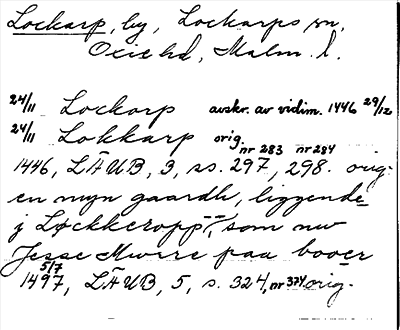 Lockarp, by, Lockarps sn,
Oxie hd, Malm. l.
24/11 Lockorp avskr. av vidim. 1446 29/12
24/11 Lokkarp orig. nr 283 nr 284
1446, LÄUB, 3, ss. 297, 298. orig.
en myn gaardh, liggende
j Løckkeropp, som nw
Jesse Mwrre paa booer
5/7
1497, LÄUB, 5, s. 324, nr 374 orig.